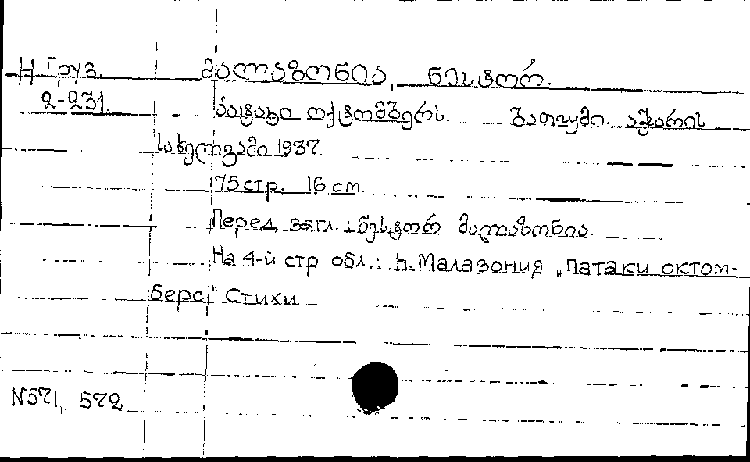 Н Груз. მალაზონია, ნესტორ.
2-231. პატაკი ოქტომბერს. ბათუმი. აჭარის
სახელგამი 1937.
75 стр. 16 cm.
Перед загл.: ნესტორ მალაზონია.
На 4-й стр обл.: Н. Малазония „Патаки октом-
берс“ Стихи
N571, 572